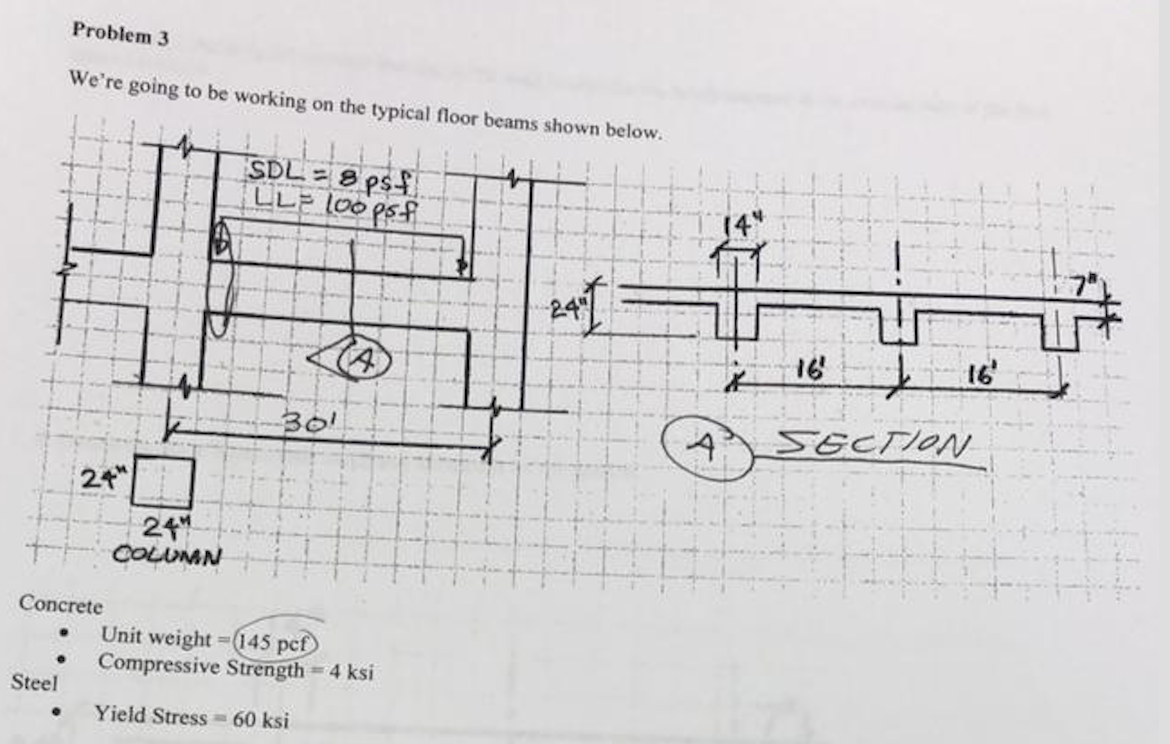 Problem 3
We're going to be working on the typical floor beams shown below.
SDL = 8 psf
LL = 100 psf
14"
7"
24"
16'
16'
A
30'
A SECTION
24"
24"
COLUMN
Concrete
• Unit weight = 145 pcf
• Compressive Strength = 4 ksi
Steel
• Yield Stress = 60 ksi